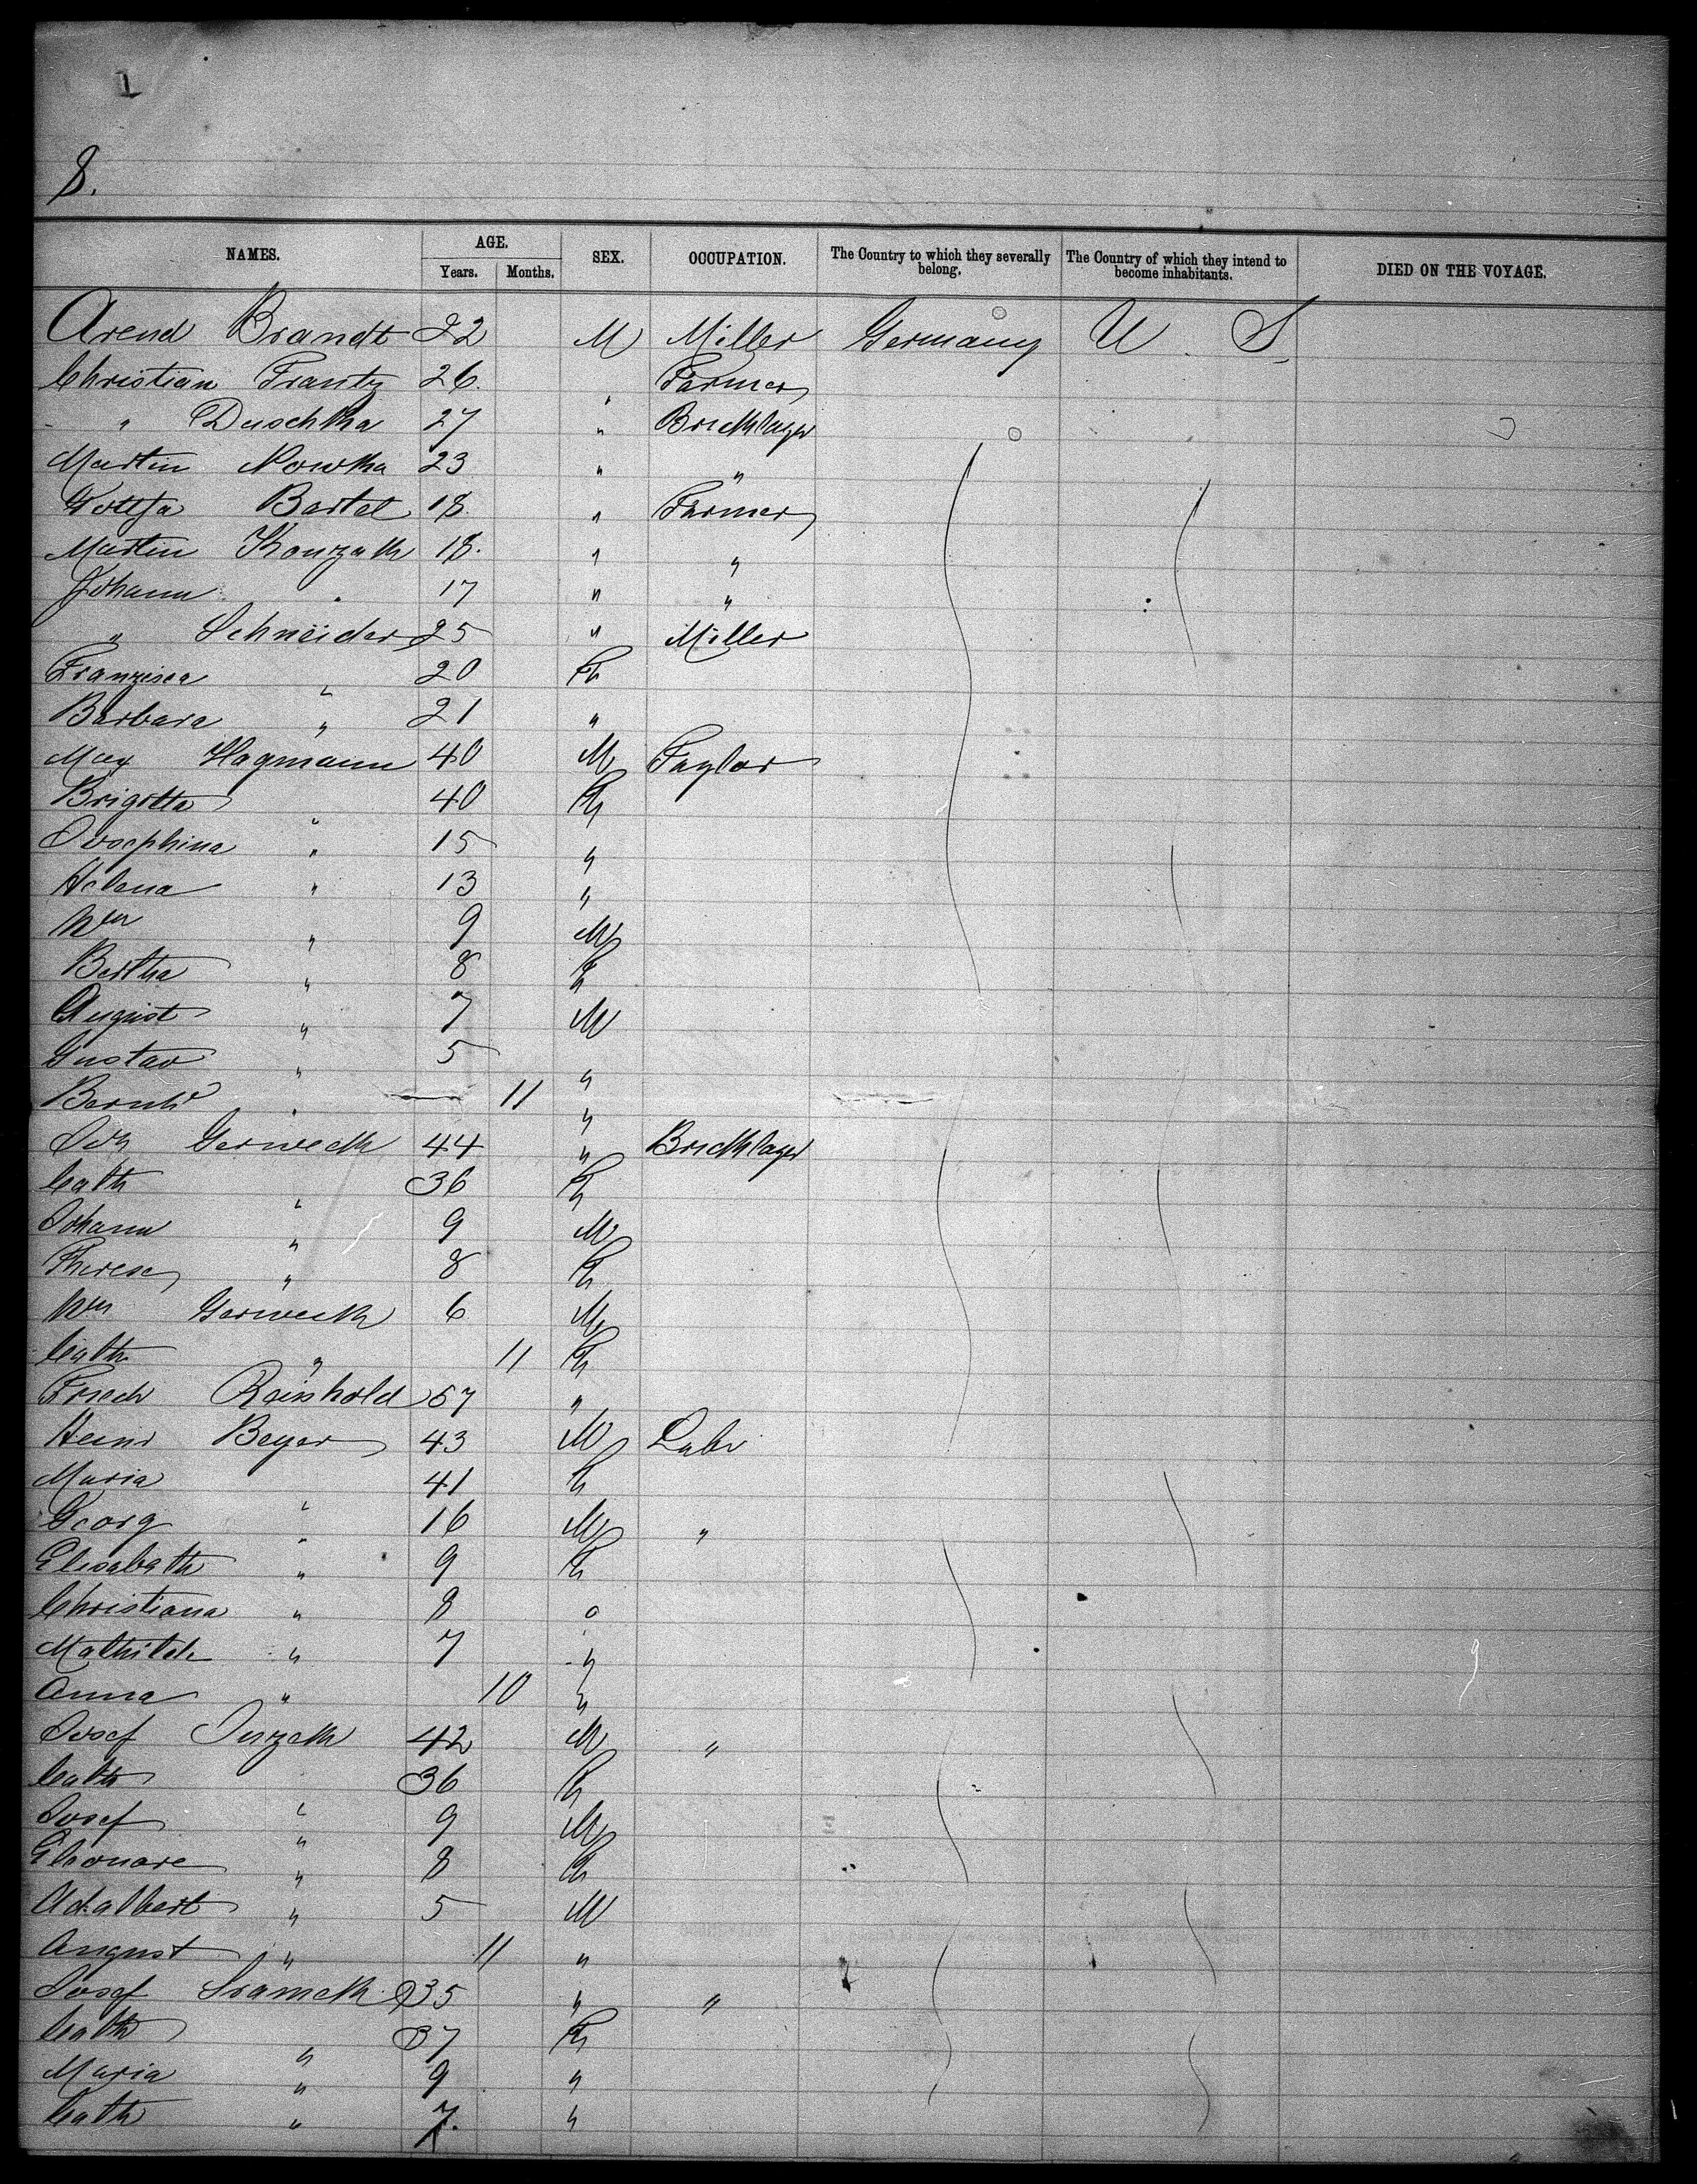 1
8.
NAMES. AGE. SEX. OCCUPATION. The Country to which they severally belong. The Country of which they intend to become inhabitants. DIED ON THE VOYAGE.
Years. Months.
Arend Brandt 22 M Miller Germany U. S.
Christian Frantz 26. " Farmer
" Duschka 27 " Bricklayer
Martin Nowka 23 " "
Bartel 18. " Farmer
Martin Konzack 18. " "
Johann " 17 " "
" Schneider 25 " Miller
Franzisca " 20 F
Barbara " 21 "
Max Hagmann 40 M Taylor
Brigitta " 40 F
Josephina " 15 "
Helena " 13 "
Wm " 9 M
Bertha " 8 F
August " 7 M
Gustav " 5 "
Bernhd " 11 "
Joh Gerweck 44 " Bricklayer
Cath " 36 F
Johann " 9 M
Therese " 8 F
Wm Gerweck 6 M
Cath " 11 F
Friedr Reinhold 57 "
Heinr Beyer 43 M Labr
Maria " 41 F
Georg " 16 M "
Elisabeth " 9 F
Christiana " 8 "
Mathilde " 7 "
Anna " 10 "
Josef 42 M "
Cath " 36 F
Josef " 9 M
Eleonore " 8 F
Adalbert " 5 M
August " 11 "
Josef Srameck 35 " "
Cath " 37 F
Maria " 9 "
Cath " 7. "